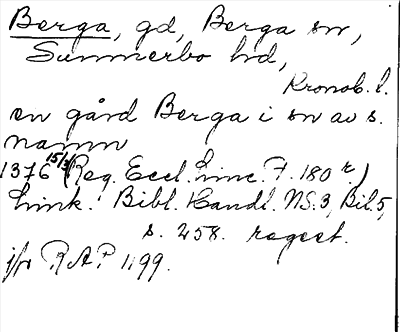 Berga, gd, Berga sn,
Sunnerbo hd,
Kronob. l.
en gård Berga i sn av s.
namn
1376 15/3 (Reg. Eccl. Linc. F. 180 r.)
Link. Bibl. Handl. NS. 3, Bil. 5,
s. 258. regest.
jfr RAP 1199.